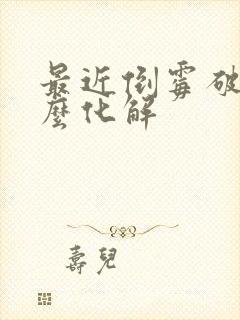 最近倒霉破
麼化解
壽兒